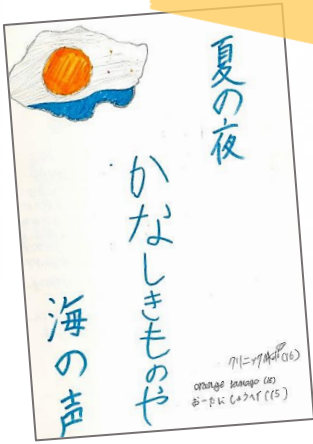 夏の夜
かなしきものや
海の声
orange tamago (18)
おーたにしょうへい(15)